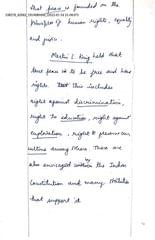 that peace is founded on the
principles of human right, equality
and justice.
Martin L King held that
true peace is to be free and have
rights. This includes
right against discrimination,
right to education, right against
exploitation, right to preserve our
culture among others. These are
also envisaged within by the Indian
Constitution and many statutes
that support it